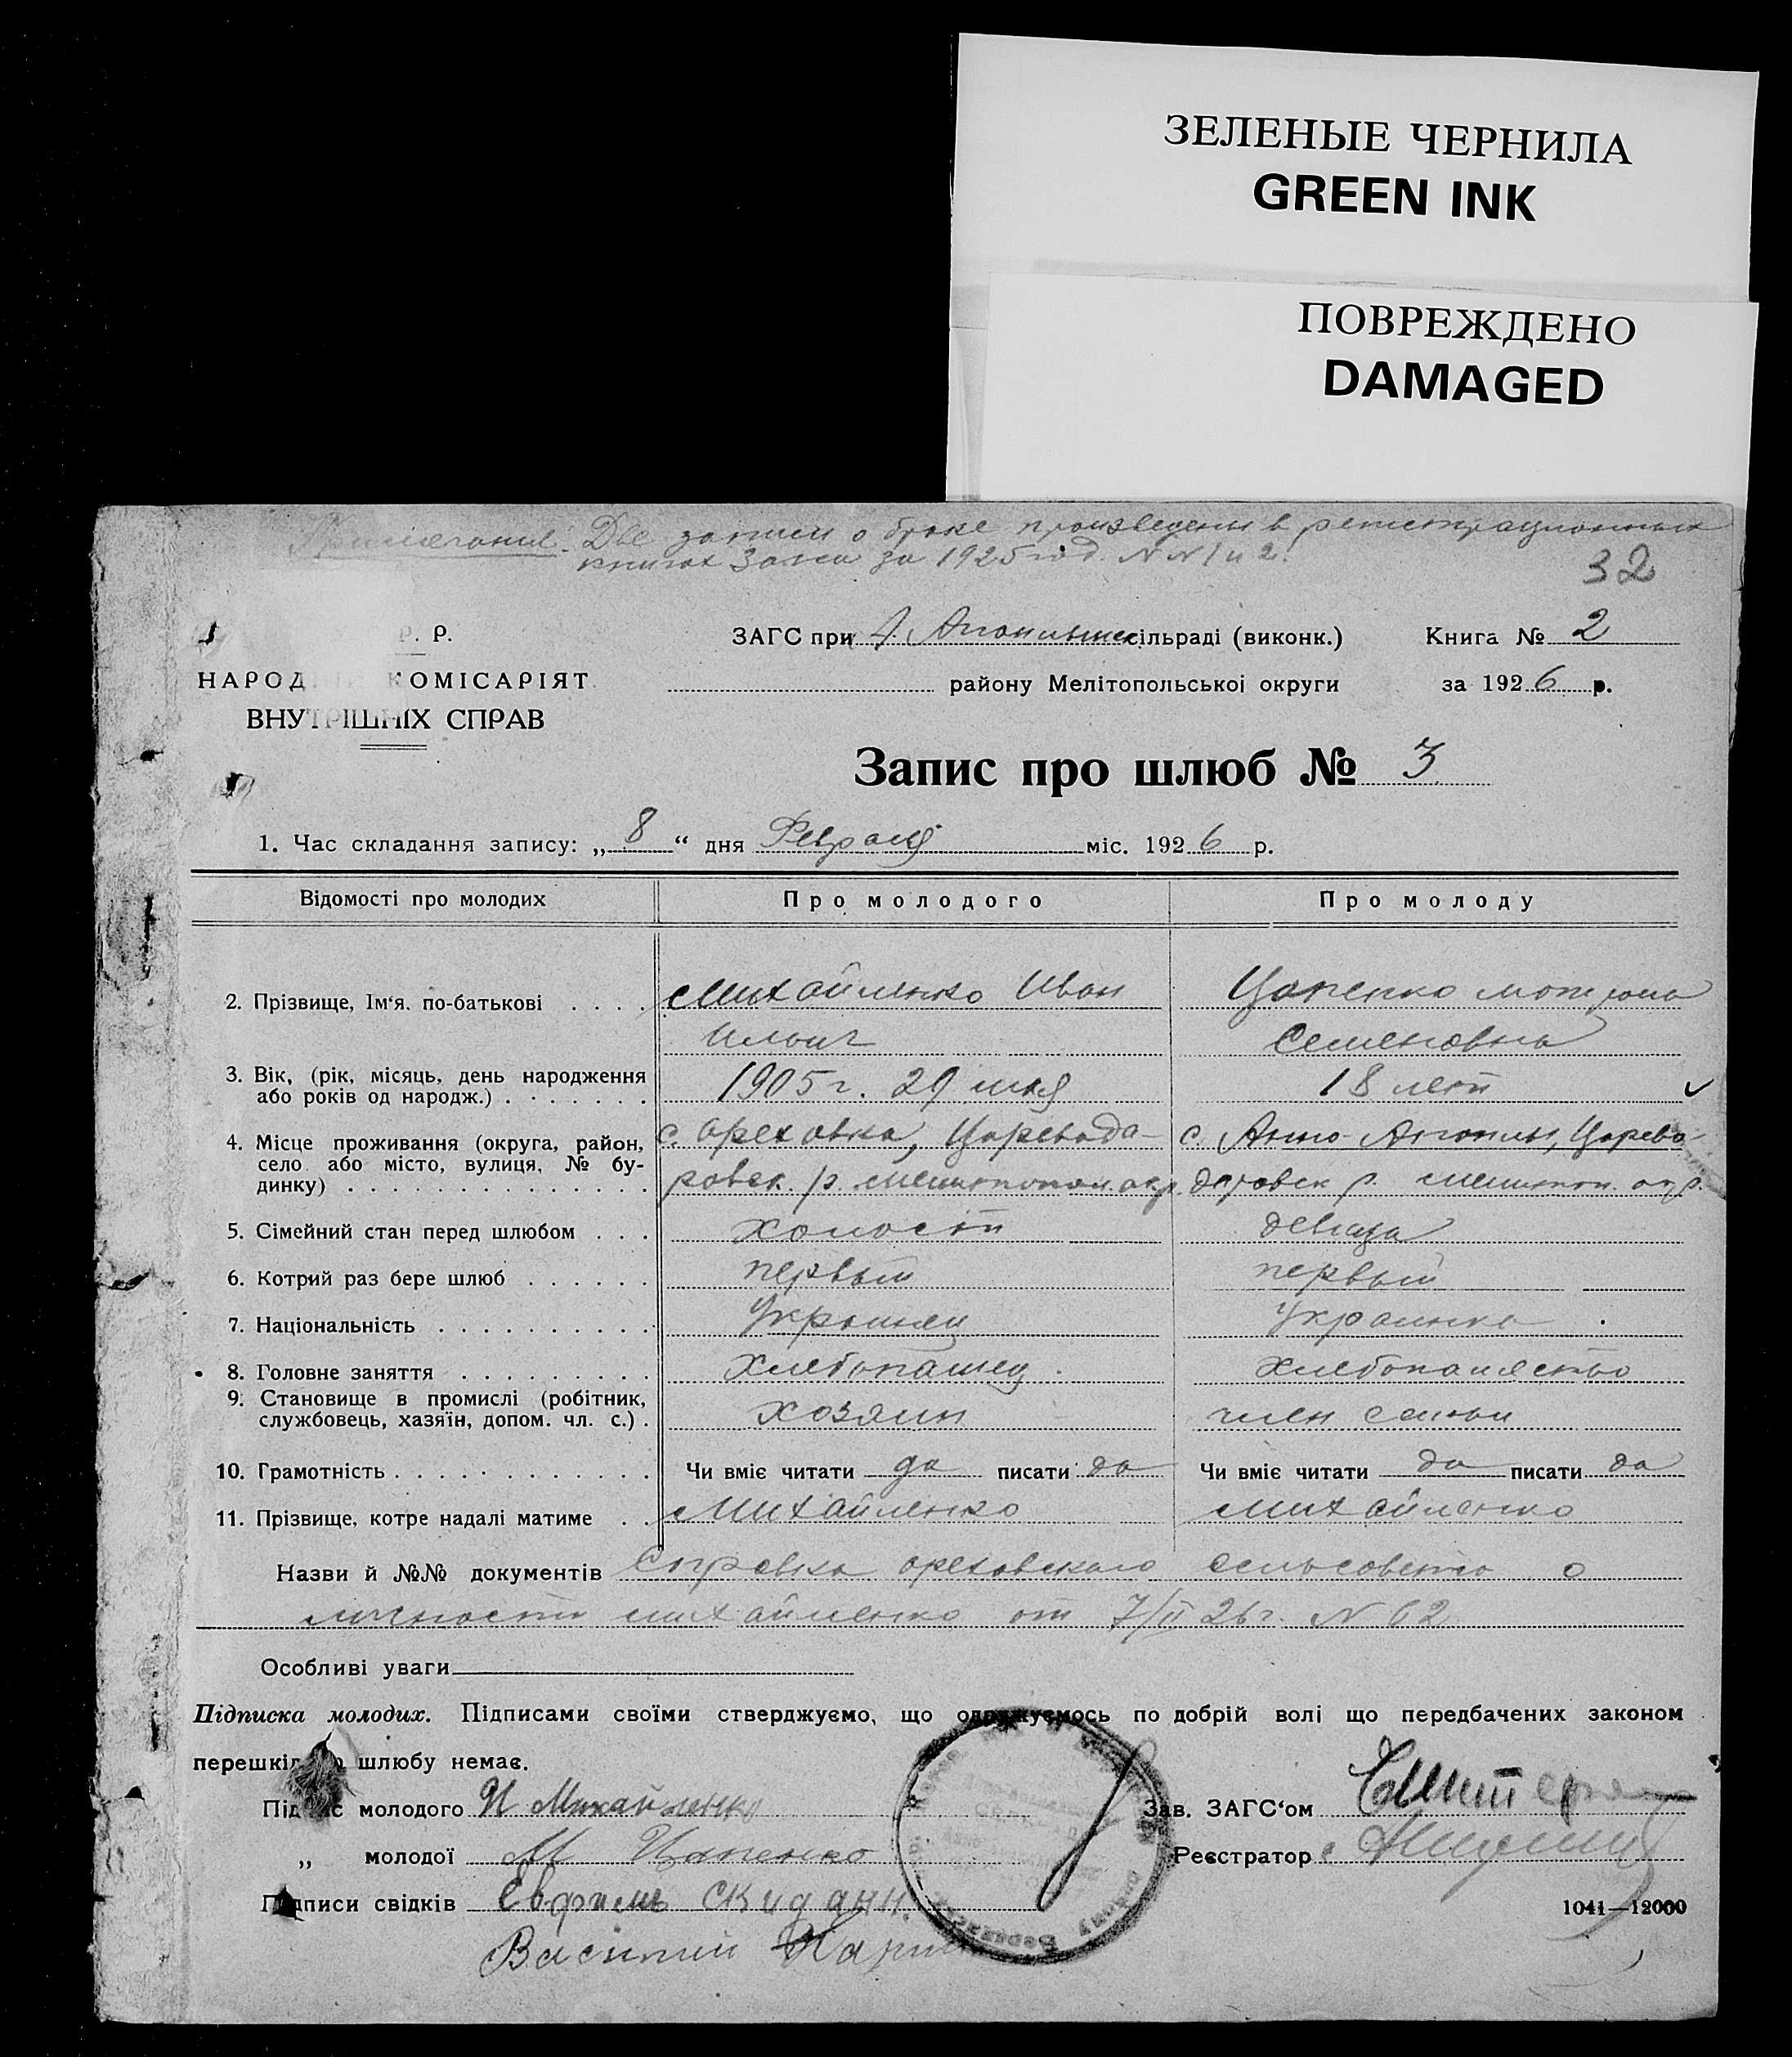 ЗЕЛЕНЫЕ ЧЕРНИЛА
GREEN INK
ПОВРЕЖДЕНО
DAMAGED
Примечание. Две записи о браке произведены в регистрационных
книгах Загса за 1925 год. N N 1 и 2.
32
Р. Р.
ЗАГС при А. Апонльинск сільраді (виконк.) Книга № 2
НАРОДНІЙ КОМІСАРІЯТ району Мелітопольської округи за 1926 р.
ВНУТРІШНІХ СПРАВ
Запис про шлюб № 3
1. Час складання запису: „ 8 “ дня Февраля міс. 1926 р.
Відомості про молодих Про молодого Про молоду
2. Прізвище, Ім‘я. по-батькові Михайленко Иван Цапенко Мотрона
Ильич Семеновна
3. Вік, (рік, місяць, день народження 1905 г. 29 18 лет
або років од народж.)
4. Місце проживання (округа, район, с. Ореховка, Царевода- с. Анно-, Царево-
село або місто, вулиця, № бу- ровск. р. Мелитопол. окр. даровск р. Мелитоп. окр.
динку)
5. Сімейний стан перед шлюбом холост девица
6. Котрий раз бере шлюб первый первый
7. Національність Украинец Украинка
8. Головне заняття Хлебопашец хлебопашество
9. Становище в промислі (робітник, хозяин член семьи
службовець, хазяїн, допом. чл. с.)
10. Грамотність Чи вміє читати да писати да Чи вміє читати да писати да
11. Прізвище, котре надалі матиме Михайленко Михайленко
Назви й №№ документів Справка ореховского сельсовета о
личности Михайленко от 7/II 26 г. N 62
Особливі уваги
Підписка молодих. Підписами своїми стверджуємо, що одружуємось по добрій волі що передбачених законом
перешкід до шлюбу немає.
Підпис молодого И Михайленко Зав. ЗАГС‘ом
„ молодої М Цапенко Реєстратор
Підписи свідків Ефрем Скидан 1041—12000
Василий